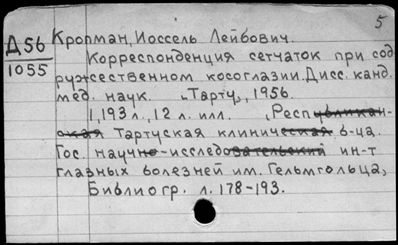 5
Д 56
1055
Кропман, Иоссель Лейбович.
Корреспонденция сетчаток при сод
ружественном косоглазии. Дисс. канд.
мед. наук. "Тарту", 1956.
1, 193 л., 12 л. илл. "Республикан-
ская Тартуская клиническая б-ца.
Гос. научно-исследовательский ин-т
глазных болезней им. Гельмгольца,
Библиогр. л. 178-193.